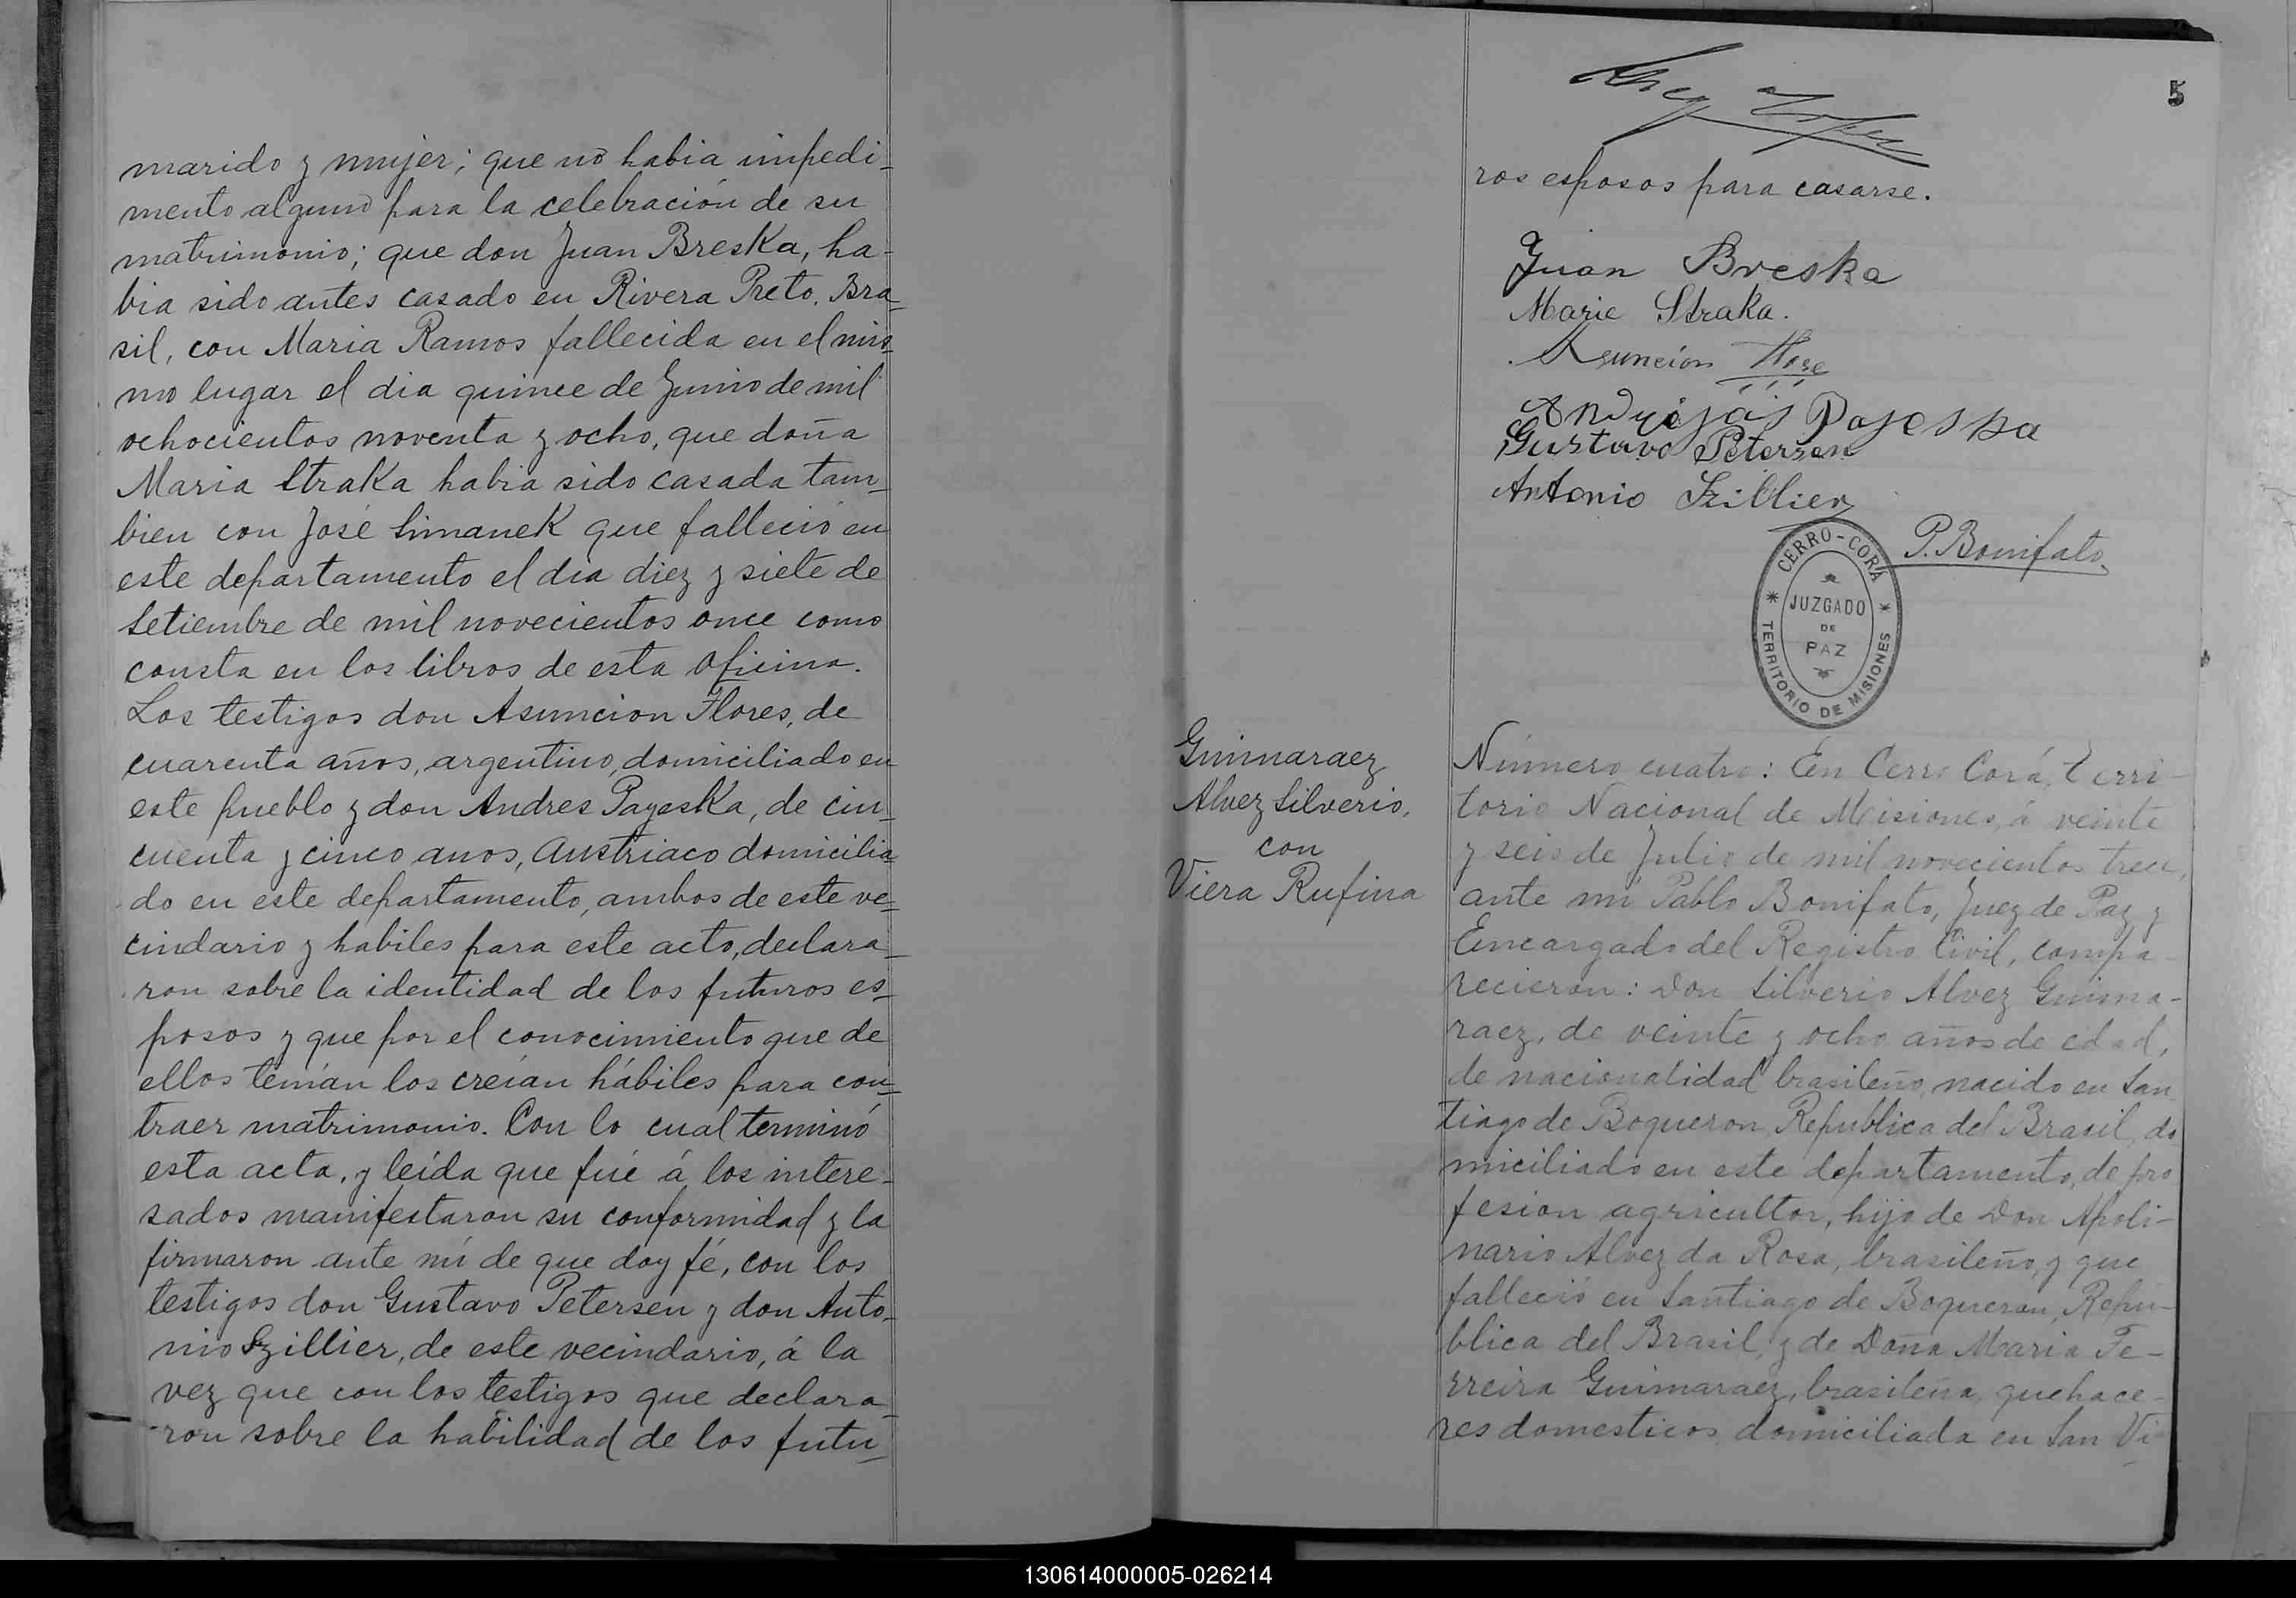 marido y mujer; que no habia impedi-
mento alguno para la celebración de su
matrimonio; que don Juan Breska, ha-
bia sido antes casado en Rivera Preto. Bra-
sil, con Maria Ramos fallecida en el mis-
mo lugar el dia quince de Junio de mil
ochocientos noventa y ocho, que doña
Maria Straka habia sido casada tam-
bien con José Simanek que falleció en
este departamento el dia diez y siete de
Setiembre de mil novecientos once como
consta en los libros de esta oficina.
Los testigos don Asuncion Flores, de
cuarenta años, argentino, domiciliado en
este pueblo y don Andres Payeska, de cin-
cuenta y cinco anos, Austriaco domicilia
do en este departamento, ambos de este ve-
cindario y habiles para este acto, declara-
ron sobre la identidad de los futuros es-
posos y que por el conocimiento que de
ellos tenían los creían hábiles para con-
traer matrimonio. Con lo cual terminó
esta acta, y leída que fué á los intere-
sados manifestaron su conformidad y la
firmaron ante mí de que doy fé, con los
testigos don Gustavo Petersen y don Anto-
nio Szillier, de este vecindario, á la
vez que con los testigos que declara-
ron sobre la habilidad de los futu-
5
ros esposos para casarse.
Juan Breska
Marie Straka.
Asunción
Payeska
Gustavo Petersen
Antonio Szillier
P. Bonifato
CERRO-CORÁ
JUZGADO
DE
PAZ
TERRITORIO DE MISIONES
Guimaraez
Alvez Silverio.
con
Viera Rufina
Número cuatro: En Cerro Corá, terri-
torio Nacional de Misiones, á veinte
y seis de Julio de mil novecientos trece,
ante mí Pablo Bonifato, Juez de Paz y
Encargado del Registro Civil, compa-
recieron: Don Silverio Alvez Guima-
raez, de veinte y ocho años de edad,
de nacionalidad brasileño, nacido en San
tiago de Boqueron, Republica del Brasil, do
miciliado en este departamento, de pro
fesion agricultor, hijo de Don Apoli-
nario Alvez da Rosa, brasileño, y que
falleció en Santiago de Boqueron, Repu-
blica del Brasil, y de Doña Maria Fe-
rreira Guimaraez, brasileña, quehace-
res domesticos domiciliada en San Vi-
130614000005-026214